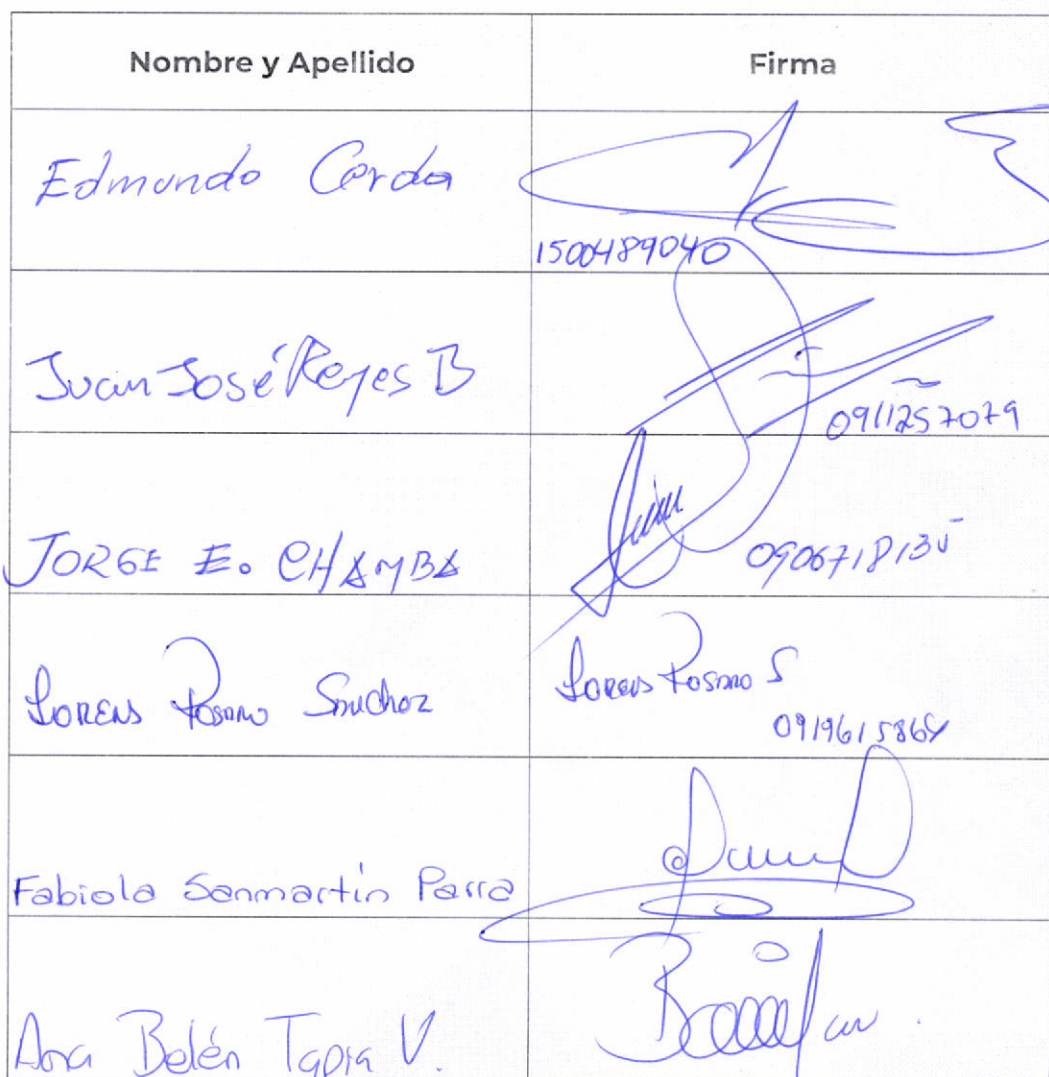 Nombre y Apellido Firma
Edmundo Cerda
1500489040
Juan José Reyes B
0911257079
JORGE E. CHAMBA
090671813
LORENS Sánchez
LORENS S
Fabiola Sanmartín Parra
Ana Belén Tapia V.